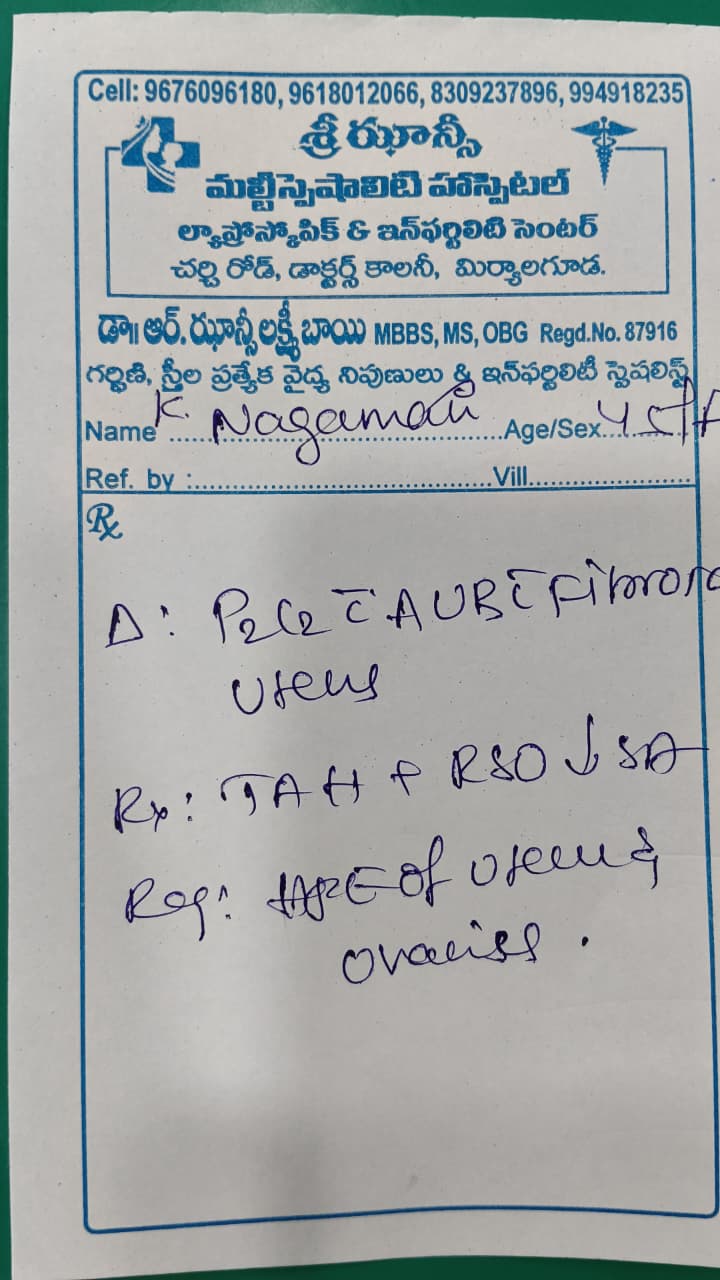 Cell: 9676096180, 9618012066, 8309237896, 994918235
శ్రీ ఝాన్సీ
మల్టీస్పెషాలిటి హాస్పిటల్
ల్యాప్రోస్కోపిక్ & ఇన్‌ఫర్టిలిటి సెంటర్
చర్చి రోడ్, డాక్టర్స్ కాలనీ, మిర్యాలగూడ.
డా॥ ఆర్. ఝాన్సీ లక్ష్మీ బాయి MBBS, MS, OBG Regd.No. 87916
గర్భిణి, స్త్రీల ప్రత్యేక వైద్య నిపుణులు & ఇన్‌ఫర్టిలిటీ స్పెషలిస్ట్
Name K. Nagamani Age/Sex 45/F
Ref. by : Vill
Rx
Δ: P2L2 c̄ AUB c̄ Fibroid
Uterus
Rx: TAH + RSO ↓ SA
Req: HPE of Uterus &
Ovaries.